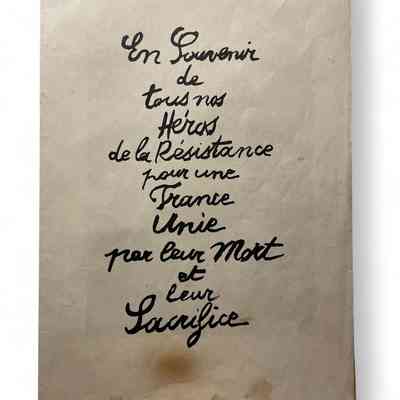 En Souvenir
de
tous nos
Héros
de la Résistance
pour une
France
Unie
par leur Mort
et
leur
Sacrifice